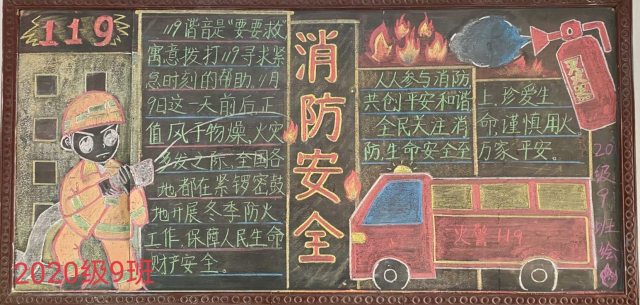 119
119谐音是“要要救”
寓意拨打119寻求紧
急时刻的帮助,11月
9日这一天前后,正
值风干物燥,火灾
多发之际,全国各
地都在紧锣密鼓
地开展冬季防火
工作,保障人民生命
财产安全。
消防安全
人人参与消防
共创平安和谐
全民关注消
防,生命安全至
上,珍爱生
命,谨慎用火
万家平安。
火警119
20级9班绘
2020级9班